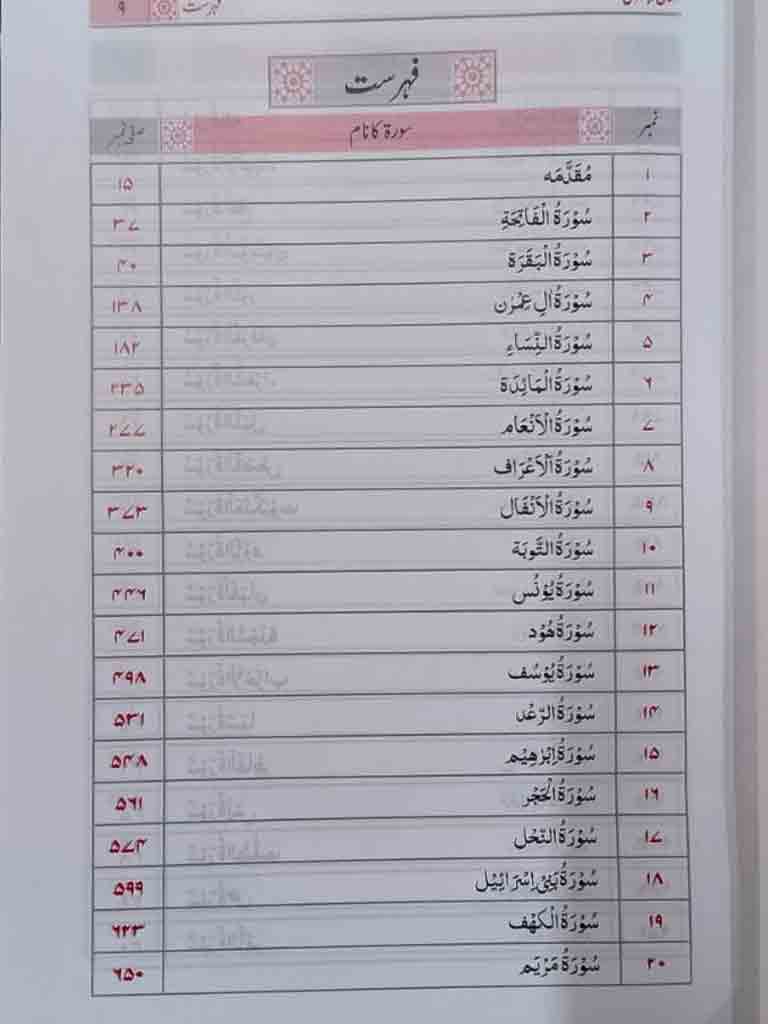 فہرست ۹
فہرست
نمبر سورۃ کا نام صفحہ نمبر
۱ مُقَدَّمَه ۱۵
۲ سُوْرَةُ الْفَاتِحَةِ ۳۷
۳ سُوْرَةُ الْبَقَرَة ۴۰
۴ سُوْرَةُ اٰلِ عِمْرٰن ۱۳۸
۵ سُوْرَةُ النِّسَاءِ ۱۸۲
۶ سُوْرَةُ الْمَائِدَة ۲۳۵
۷ سُوْرَةُ الْاَنْعَام ۲۷۷
۸ سُوْرَةُ الْاَعْرَاف ۳۲۰
۹ سُوْرَةُ الْاَنْفَال ۳۷۳
۱۰ سُوْرَةُ التَّوبَة ۴۰۰
۱۱ سُوْرَةُ يُوْنُس ۴۴۶
۱۲ سُوْرَةُ هُوْد ۴۷۱
۱۳ سُوْرَةُ يُوْسُف ۴۹۸
۱۴ سُوْرَةُ الرَّعْد ۵۳۱
۱۵ سُوْرَةُ اِبْرٰهِيْم ۵۴۸
۱۶ سُوْرَةُ الْحَجْر ۵۶۱
۱۷ سُوْرَةُ النَّحْل ۵۷۴
۱۸ سُوْرَةُ بَنِيْ اِسْرَائِيْل ۵۹۹
۱۹ سُوْرَةُ الْكَهْف ۶۲۳
۲۰ سُوْرَةُ مَرْيَم ۶۵۰